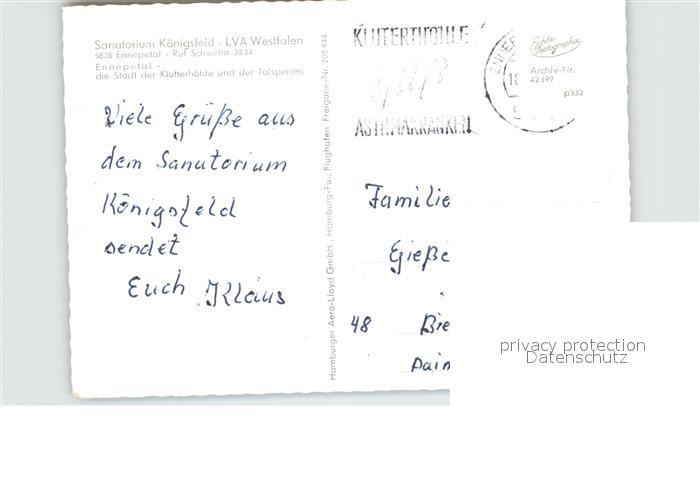 Sanatorium Königsfeld - LVA Westfalen
5828 Ennepetal - Ruf Schwelm 2824
Ennepetal -
die Stadt der Klutterhöhle und der Talsperren
Viele Grüße aus
dem Sanatorium
Königsfeld
sendet
Euch Klaus
Hamburger Aero-Lloyd GmbH., Hamburg-Fu., Flughafen Freigabe-Nr. 205 944
KLUTERTHÖHLE
ASTHMAKRANKEN
ENNEP
18
Echte
Photographie
Archiv-Nr.
42 399
p332
Familie
Gieße
48 Bie
privacy protection
Datenschutz